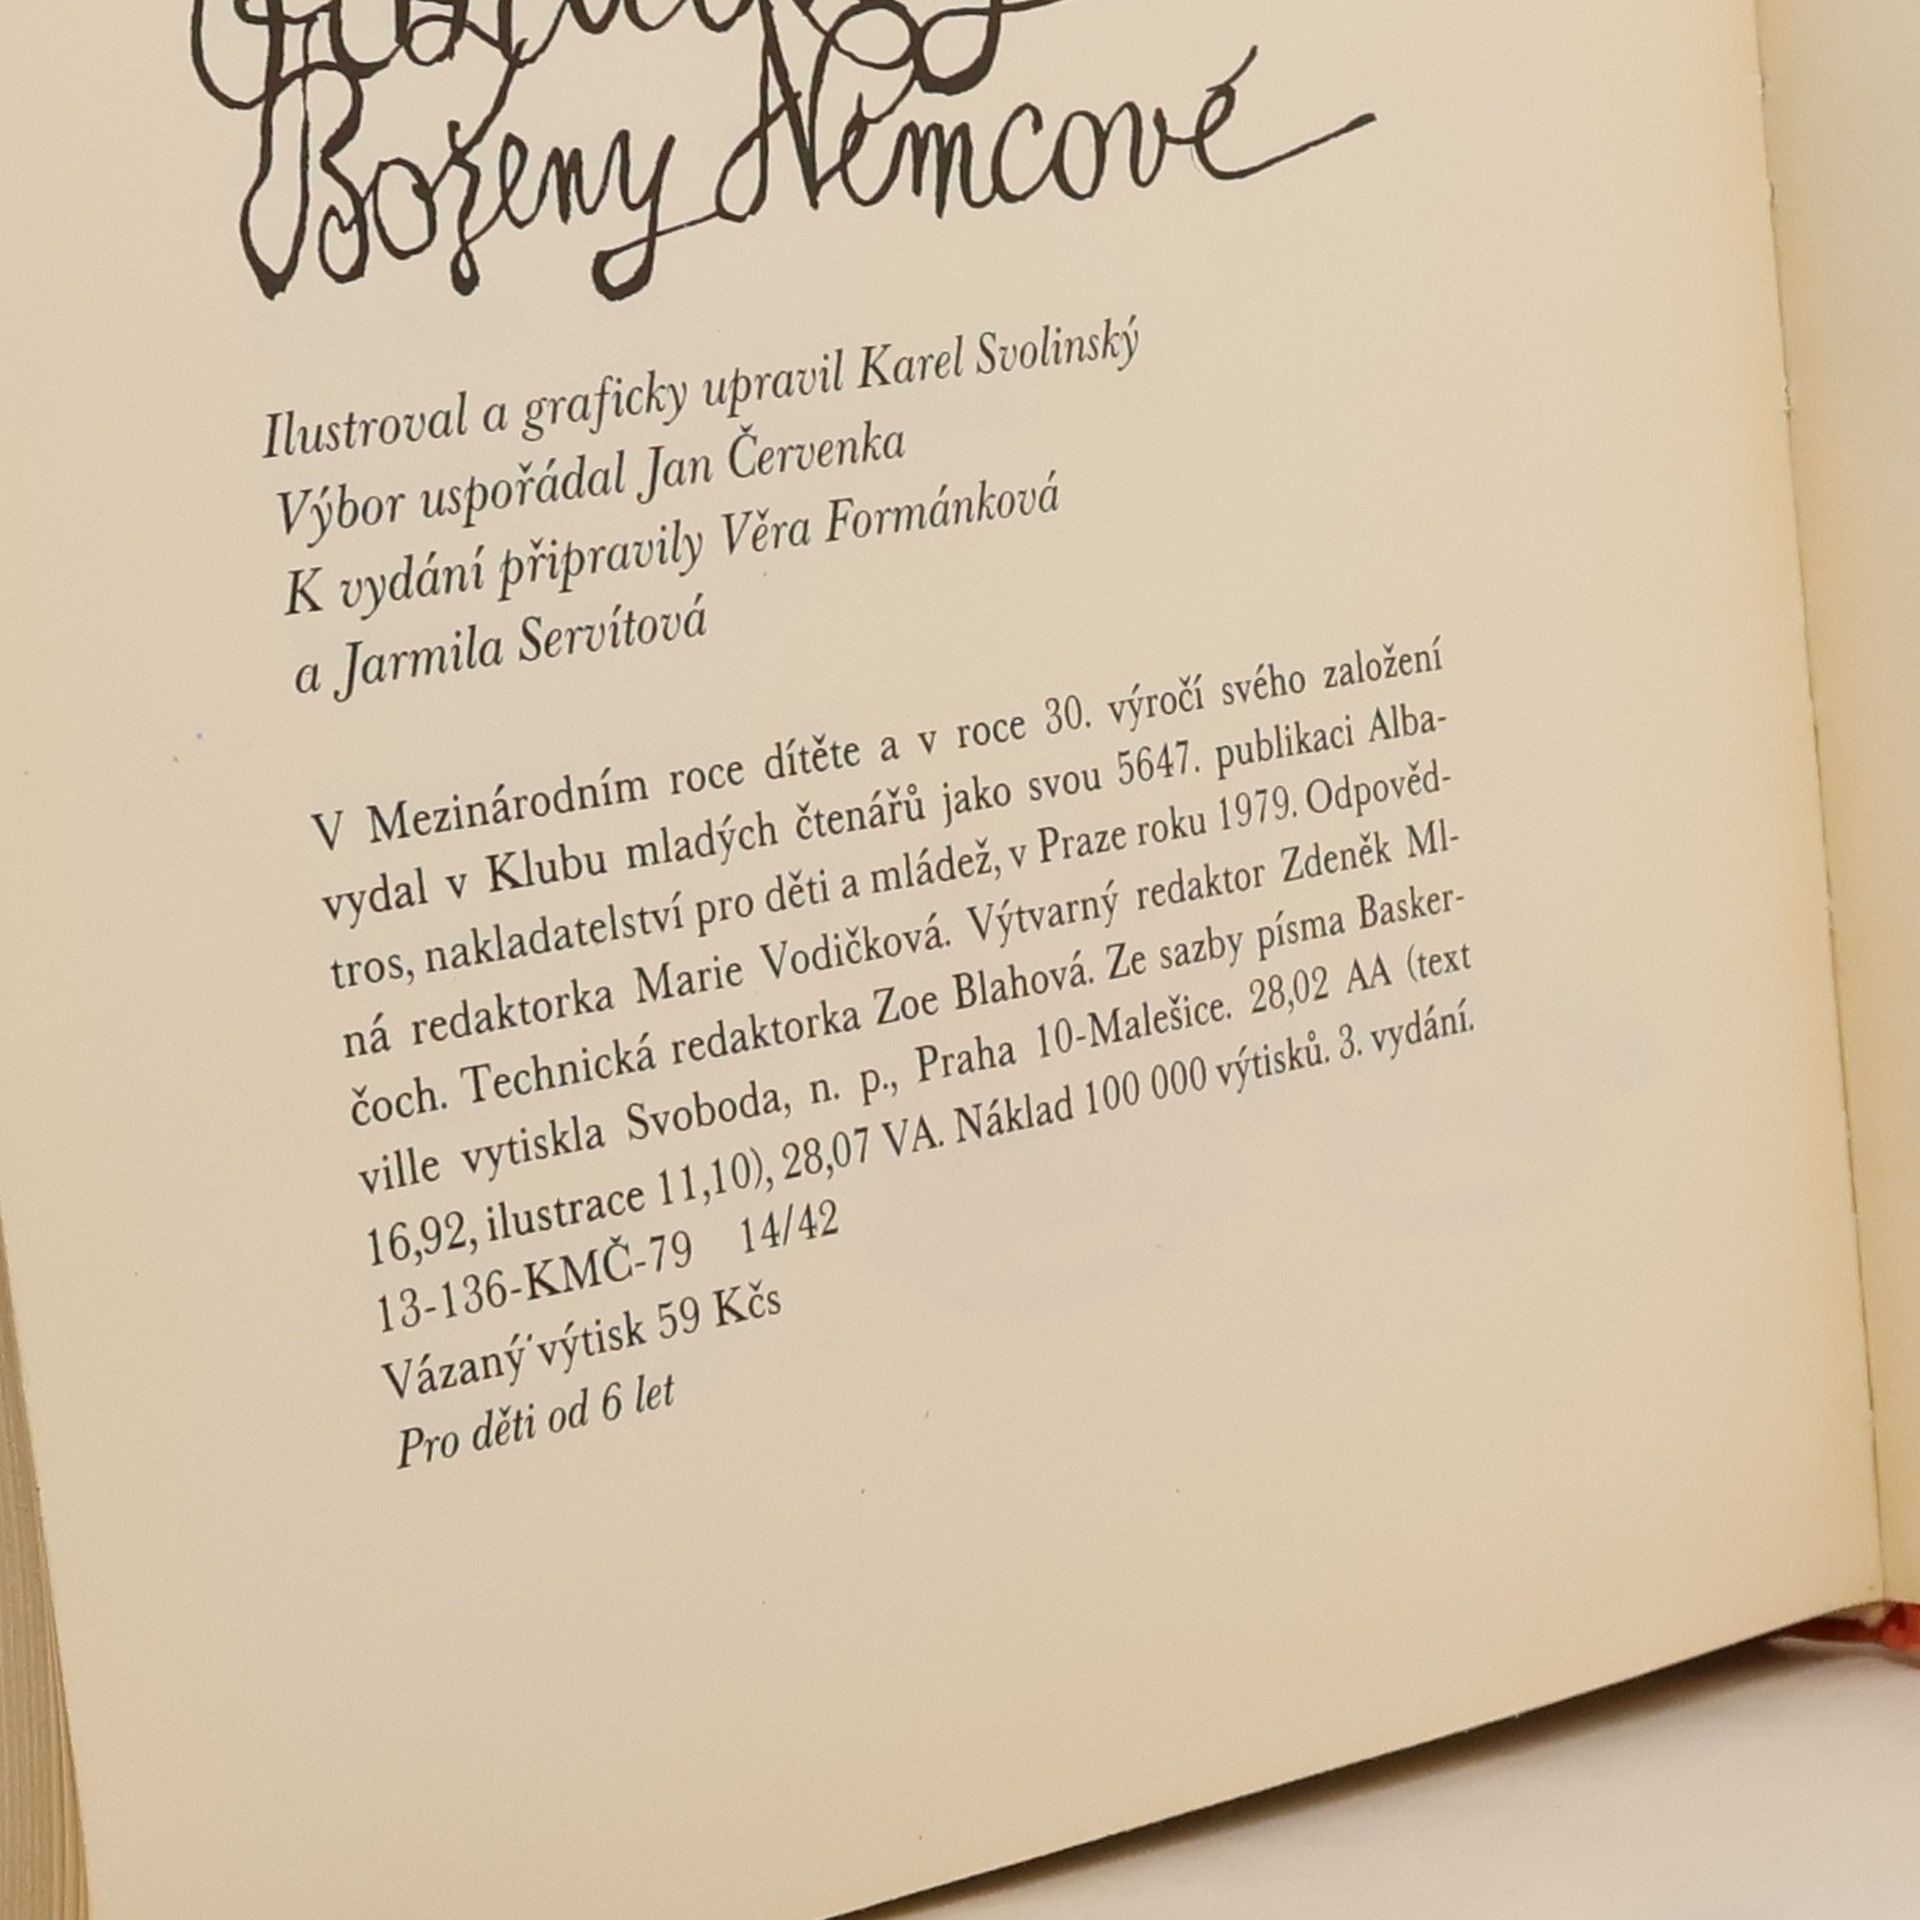 Boženy Němcové
Ilustroval a graficky upravil Karel Svolinský
Výbor uspořádal Jan Červenka
K vydání připravily Věra Formánková
a Jarmila Servítová
V Mezinárodním roce dítěte a v roce 30. výročí svého založení
vydal v Klubu mladých čtenářů jako svou 5647. publikaci Alba-
tros, nakladatelství pro děti a mládež, v Praze roku 1979. Odpověd-
ná redaktorka Marie Vodičková. Výtvarný redaktor Zdeněk Ml-
čoch. Technická redaktorka Zoe Blahová. Ze sazby písma Basker-
ville vytiskla Svoboda, n. p., Praha 10-Malešice. 28,02 AA (text
16,92, ilustrace 11,10), 28,07 VA. Náklad 100 000 výtisků. 3. vydání.
13-136-KMČ-79 14/42
Vázaný výtisk 59 Kčs
Pro děti od 6 let